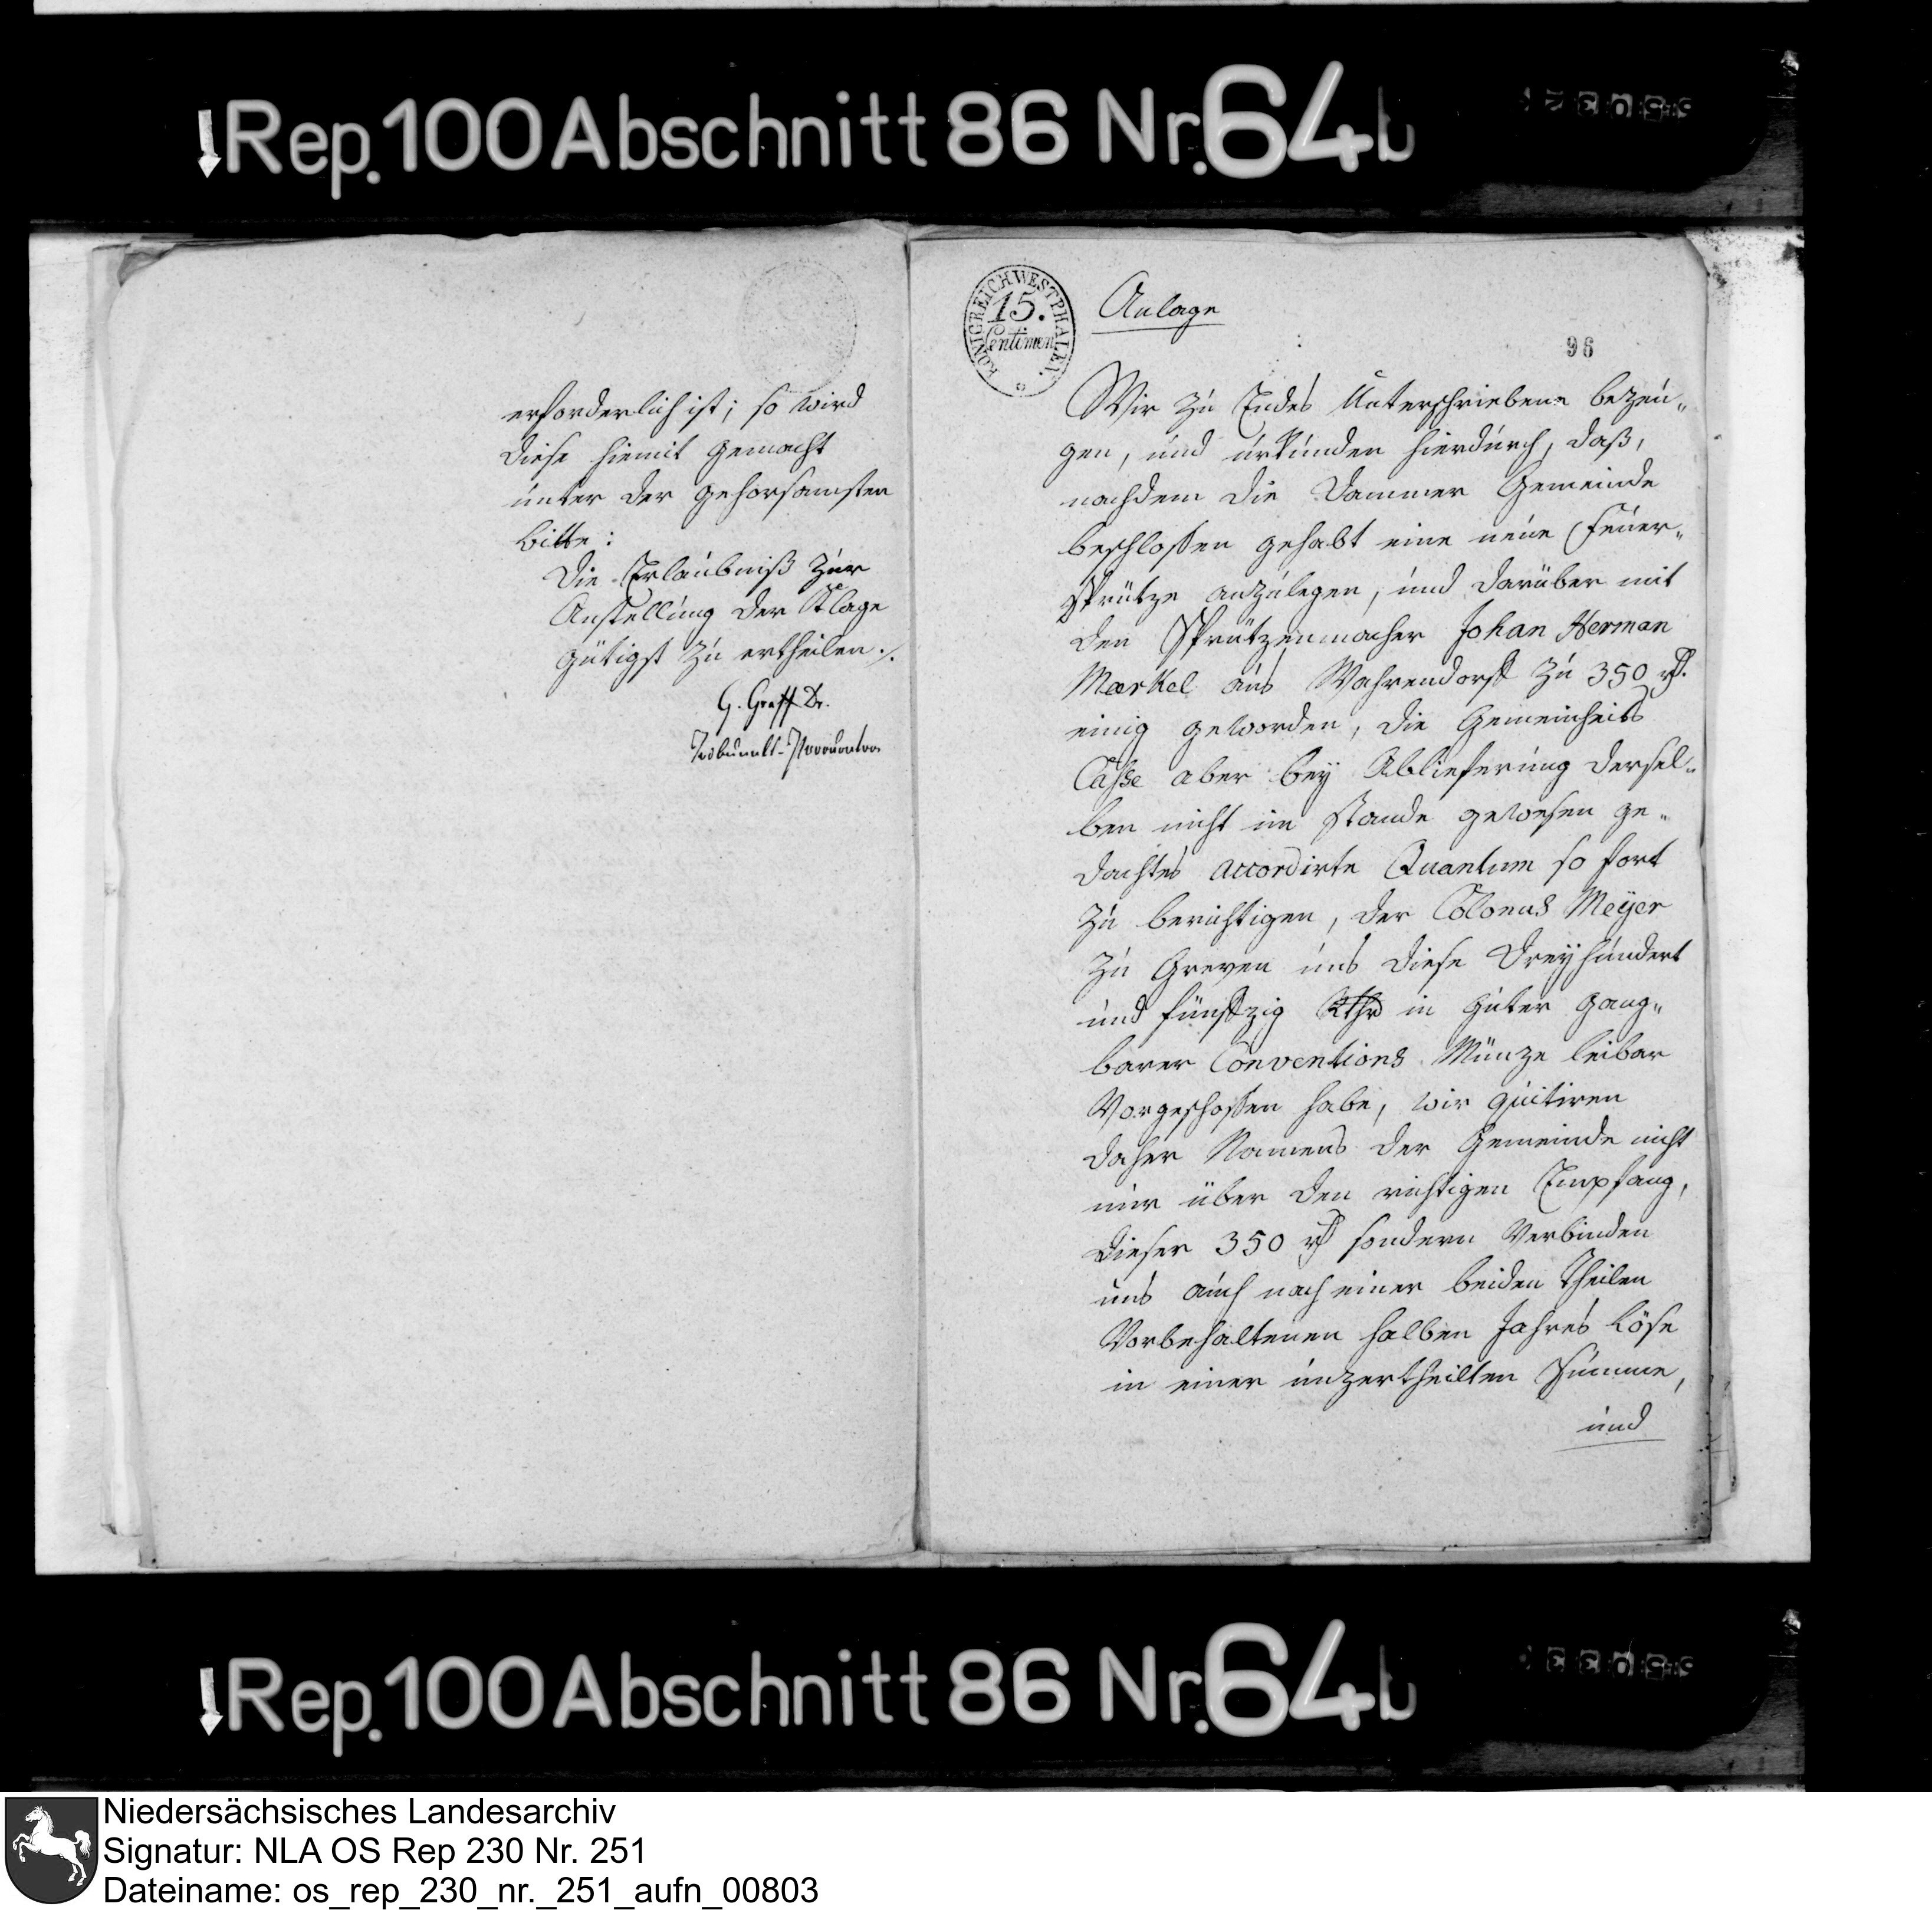 Rep. 100 Abschnitt 86 Nr. 64b
erforderlich ist; so wird
diese hiemit gemacht
unter der gehorsamsten
bitte:
Die Erlaubniß zur
Anstellung der Klage
gütigst zu ertheilen ./.
G. Graff Dr.
Tribunals-Procurator
KÖNIGREICH WESTPHALEN.
15.
Centimen
Anlage
96
Wir zu Endes Unterschriebene bezeu„
gen, und urkunden hierdurch, daß,
nachdem die Dammer Gemeinde
beschloßen gehabt eine neue Feuer„
sprütze anzulegen, und darüber mit
den Sprützenmacher Johan Herman
Markel aus Wahrendorf zu 350 rt.
einig geworden, die Gemeinheits
Caße aber bey Ablieferung dersel„
ben nicht im stande gewesen ge„
dachtes accordirte Quantum so fort
zu berichtigen, der Colonus Meyer
zu Greven uns diese Dreyhundert
und fünfzig Rthr in guter gang„
barer Conventions Münze leibar
Vorgeschoßen habe, wir quitiren
daher Namens der Gemeinde nicht
nur über den richtigen Empfang,
dieser 350 rt sondern Verbinden
uns auch nach einer beiden Theilen
Vorbehaltenen halben Jahres Löse
in einer unzertheilten Summe,
und
Rep. 100 Abschnitt 86 Nr. 64b
Niedersächsisches Landesarchiv
Signatur: NLA OS Rep 230 Nr. 251
Dateiname: os_rep_230_nr._251_aufn_00803